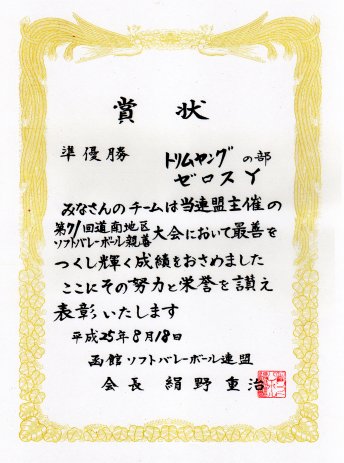 賞状
準優勝 トリムヤングの部
ゼロスY
みなさんのチームは当連盟主催の
第71回道南地区
ソフトバレーボール親善大会において最善を
つくし輝く成績をおさめました
ここにその努力と栄誉を讃え
表彰いたします
平成25年8月18日
函館ソフトバレーボール連盟
会長 絹野重治